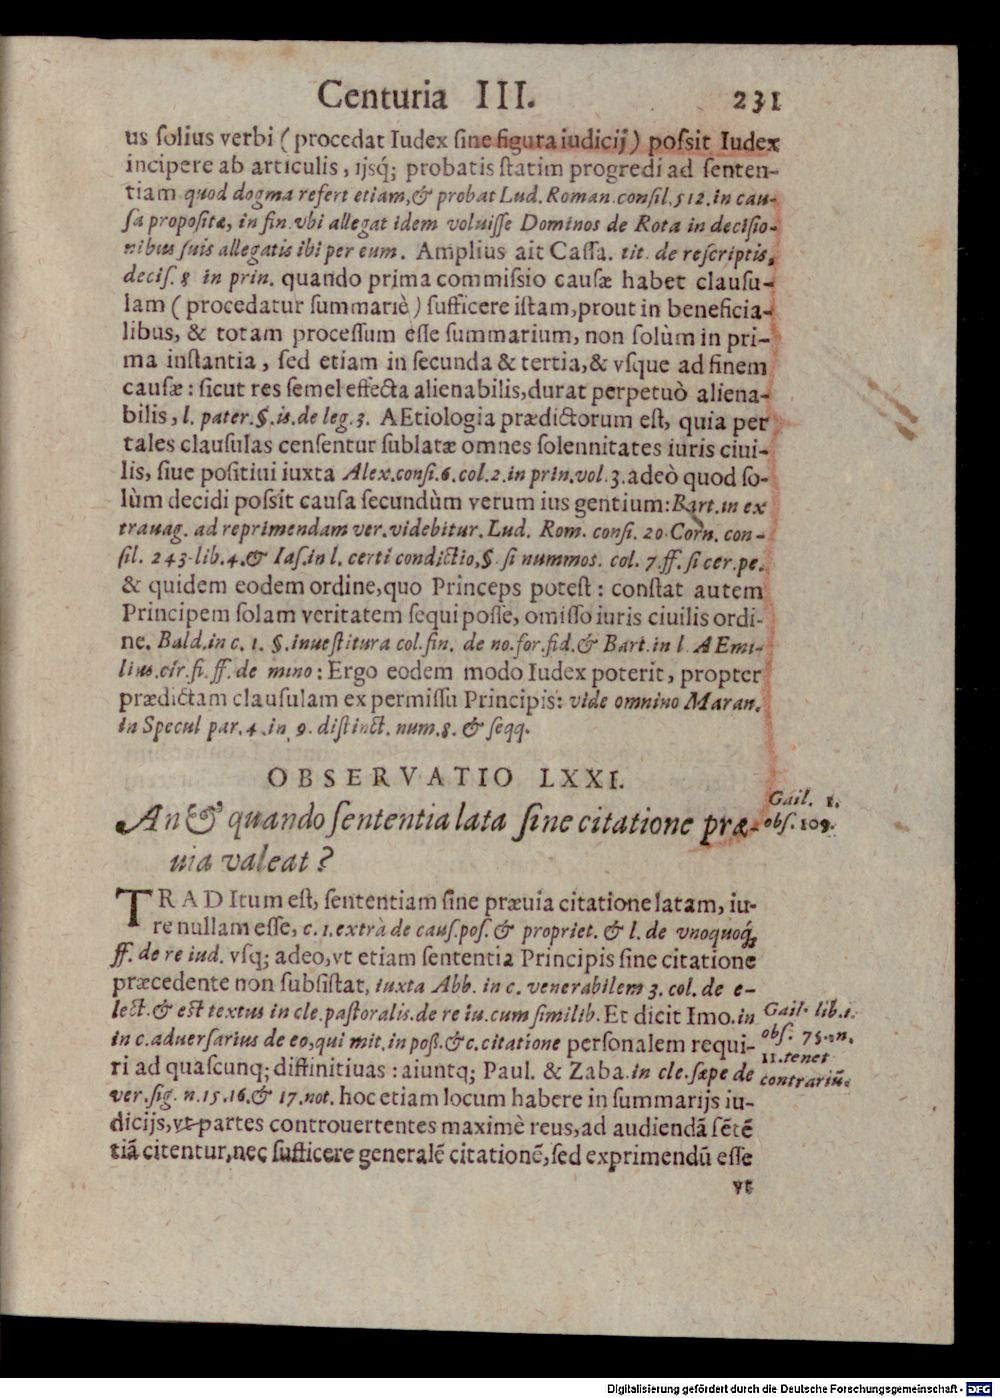 Centuria III. 231
us ſolius verbi ( procedat Iudex ſine figura iudicij ) poſsit Iudex
incipere ab articulis, ijsq́; probatis ſtatim progredi ad ſenten-
tiam quod dogma refert etiam, & probat Lud. Roman. conſil. 512. in cau-
ſa propoſitæ, in fin. vbi allegat idem voluiſſe Dominos de Rota in deciſio-
nibus ſuis allegatis ibi per eum. Amplius ait Caſſa. tit. de reſcriptis,
deciſ. 8 in prin. quando prima commiſsio cauſæ habet clauſu-
lam ( procedatur ſummariè ) ſufficere iſtam, prout in beneficia-
libus, & totam proceſſum eſſe ſummarium, non ſolùm in pri-
ma inſtantia, ſed etiam in ſecunda & tertia, & vſque ad finem
cauſæ: ſicut res ſemel effecta alienabilis, durat perpetuò aliena-
bilis, l. pater. §. is. de leg. 3. AEtiologia prædictorum eſt, quia per
tales clauſulas cenſentur ſublatæ omnes ſolennitates iuris ciui-
lis, ſiue poſitiui iuxta Alex. conſi. 6. col. 2. in prin. vol. 3. adeò quod ſo-
lùm decidi poſsit cauſa ſecundùm verum ius gentium: Bart. in ex
trauag. ad reprimendam ver. videbitur. Lud. Rom. conſi. 20. Corn. con-
ſil. 243. lib. 4. & Iaſ. in l. certi condictio, §. ſi nummos. col. 7. ff. ſi cer. pe.
& quidem eodem ordine, quo Princeps poteſt: conſtat autem
Principem ſolam veritatem ſequi poſſe, omiſſo iuris ciuilis ordi-
ne. Bald. in c. 1. §. inueſtitura col. fin. de no. for. fid. & Bart. in l. AEmi-
lius. cir. fi. ff. de mino: Ergo eodem modo Iudex poterit, propter
prædictam clauſulam ex permiſſu Principis: vide omnino Maran.
in Specul par. 4. in 9. diſtinct. num. 8. & ſeqq.
OBSERVATIO LXXI.
An & quando ſententia lata ſine citatione præ-
uia valeat?
Gail. 1.
obſ. 109.
TRADItum eſt, ſententiam ſine præuia citatione latam, iu-
re nullam eſſe, c. 1. extrà de cauſ. poſ. & propriet. & l. de vnoquoq́;
ff. de re iud. vſq; adeo, vt etiam ſententia Principis ſine citatione
præcedente non ſubſiſtat, iuxta Abb. in c. venerabilem 3. col. de e-
lect. & eſt textus in cle. paſtoralis. de re iu. cum ſimilib. Et dicit Imo. in
in c. aduerſarius de eo, qui mit. in poß. & c. citatione perſonalem requi-
ri ad quaſcunq; diffinitiuas: aiuntq; Paul. & Zaba. in cle. ſæpe de
ver. ſig. n. 15. 16. & 17. not. hoc etiam locum habere in ſummarijs iu-
dicijs, vt partes controuertentes maximè reus, ad audiendā ſētē
tiā citentur, nec ſufficere generalē citationē, ſed exprimendū eſſe
Gail. lib. 1.
obſ. 75. n.
11. tenet
contrariū.
vt
Digitalisierung gefördert durch die Deutsche Forschungsgemeinschaft - DFG